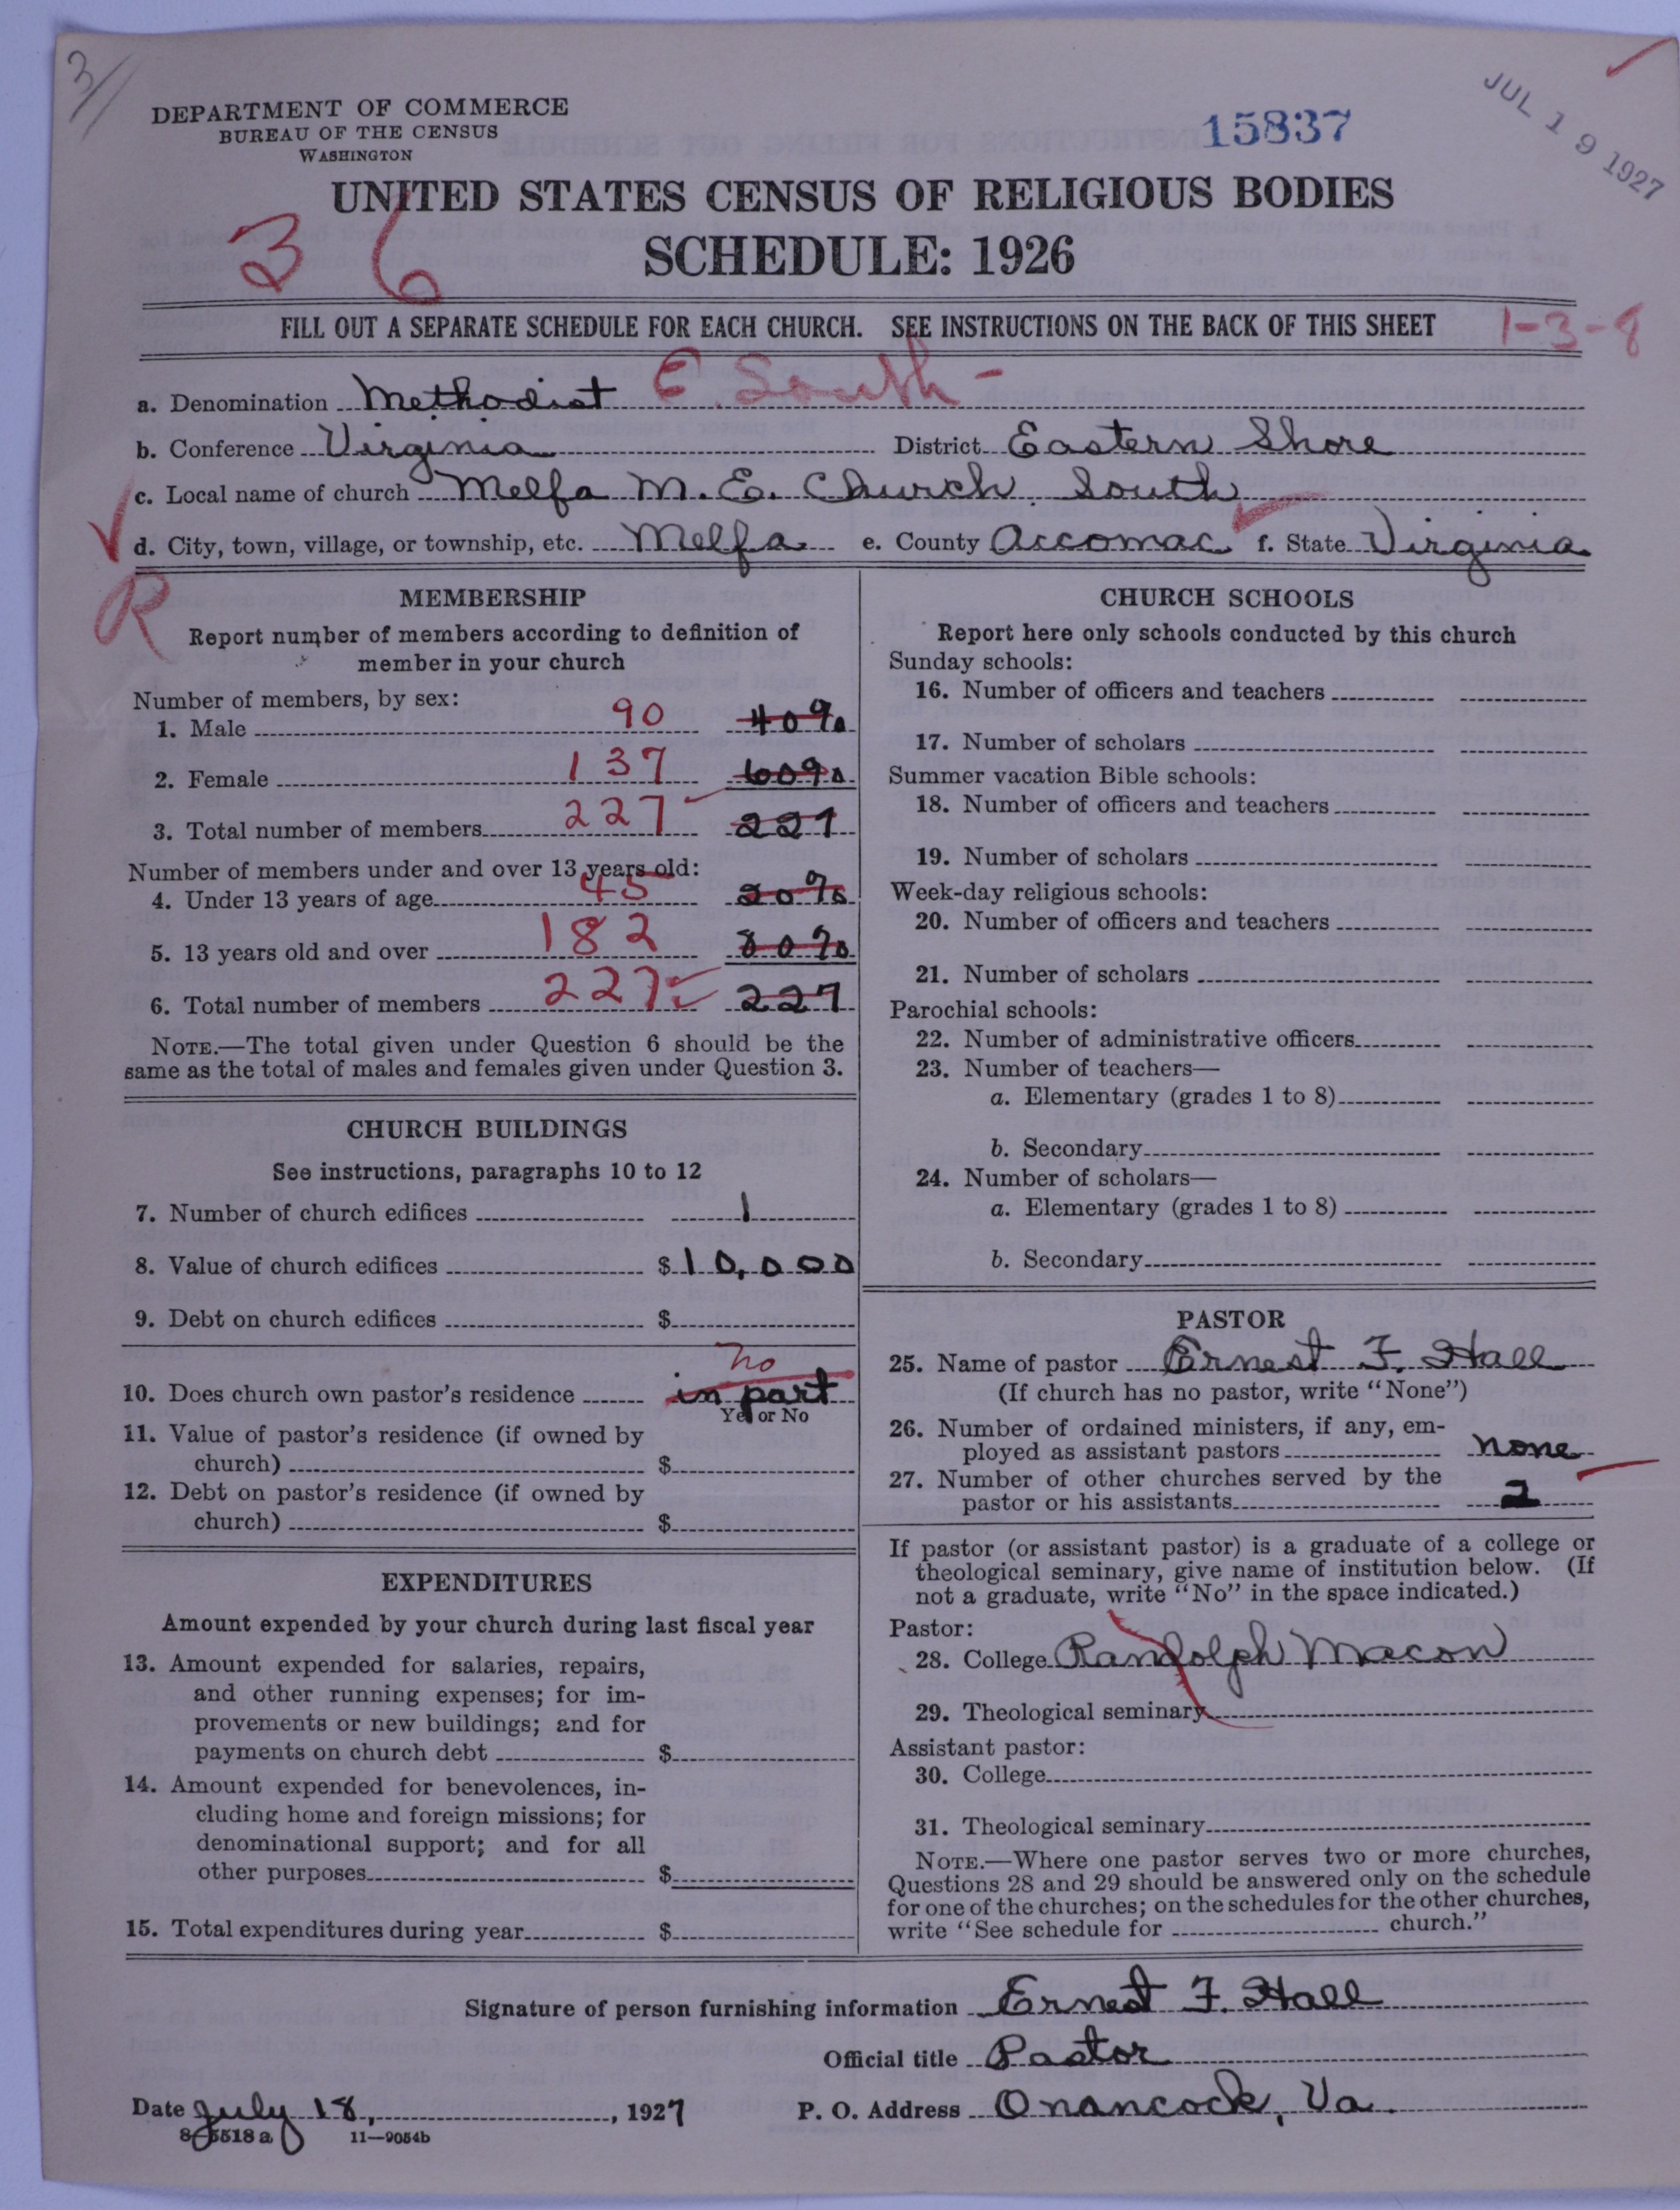 3/
JUL 19 1927
DEPARTMENT OF COMMERCE
BUREAU OF THE CENSUS
WASHINGTON
15837
UNITED STATES CENSUS OF RELIGIOUS BODIES
SCHEDULE: 1926
36
FILL OUT A SEPARATE SCHEDULE FOR EACH CHURCH. SEE INSTRUCTIONS ON THE BACK OF THIS SHEET
1-3-8
a. Denomination Methodist E. South-
b. Conference Virginia District Eastern Shore
c. Local name of church Melfa M. E. Church South
d. City, town, village, or township, etc. Melfa e. County Accomac f. State Virginia
R
MEMBERSHIP
Report number of members according to definition of
member in your church
Number of members, by sex:
1. Male 90 40%
2. Female 137 60%
3. Total number of members 227 227
Number of members under and over 13 years old:
4. Under 13 years of age 45 20%
5. 13 years old and over 182 80%
6. Total number of members 227 227
NOTE.—The total given under Question 6 should be the
same as the total of males and females given under Question 3.
CHURCH BUILDINGS
See instructions, paragraphs 10 to 12
7. Number of church edifices 1
8. Value of church edifices $10,000
9. Debt on church edifices $
no
10. Does church own pastor's residence in part
Yes or No
11. Value of pastor's residence (if owned by
church) $
12. Debt on pastor's residence (if owned by
church) $
EXPENDITURES
Amount expended by your church during last fiscal year
13. Amount expended for salaries, repairs,
and other running expenses; for im-
provements or new buildings; and for
payments on church debt $
14. Amount expended for benevolences, in-
cluding home and foreign missions; for
denominational support; and for all
other purposes $
15. Total expenditures during year $
CHURCH SCHOOLS
Report here only schools conducted by this church
Sunday schools:
16. Number of officers and teachers
17. Number of scholars
Summer vacation Bible schools:
18. Number of officers and teachers
19. Number of scholars
Week-day religious schools:
20. Number of officers and teachers
21. Number of scholars
Parochial schools:
22. Number of administrative officers
23. Number of teachers—
a. Elementary (grades 1 to 8)
b. Secondary
24. Number of scholars—
a. Elementary (grades 1 to 8)
b. Secondary
PASTOR
25. Name of pastor Ernest F. Hall
(If church has no pastor, write "None")
26. Number of ordained ministers, if any, em-
ployed as assistant pastors none
27. Number of other churches served by the
pastor or his assistants 2
If pastor (or assistant pastor) is a graduate of a college or
theological seminary, give name of institution below. (If
not a graduate, write "No" in the space indicated.)
Pastor:
28. College Randolph Macon
29. Theological seminary
Assistant pastor:
30. College
31. Theological seminary
NOTE.—Where one pastor serves two or more churches,
Questions 28 and 29 should be answered only on the schedule
for one of the churches; on the schedules for the other churches,
write "See schedule for church."
Signature of person furnishing information Ernest F. Hall
Official title Pastor
Date July 18, , 1927 P. O. Address Onancock, Va.
8-5518a 11-9054b